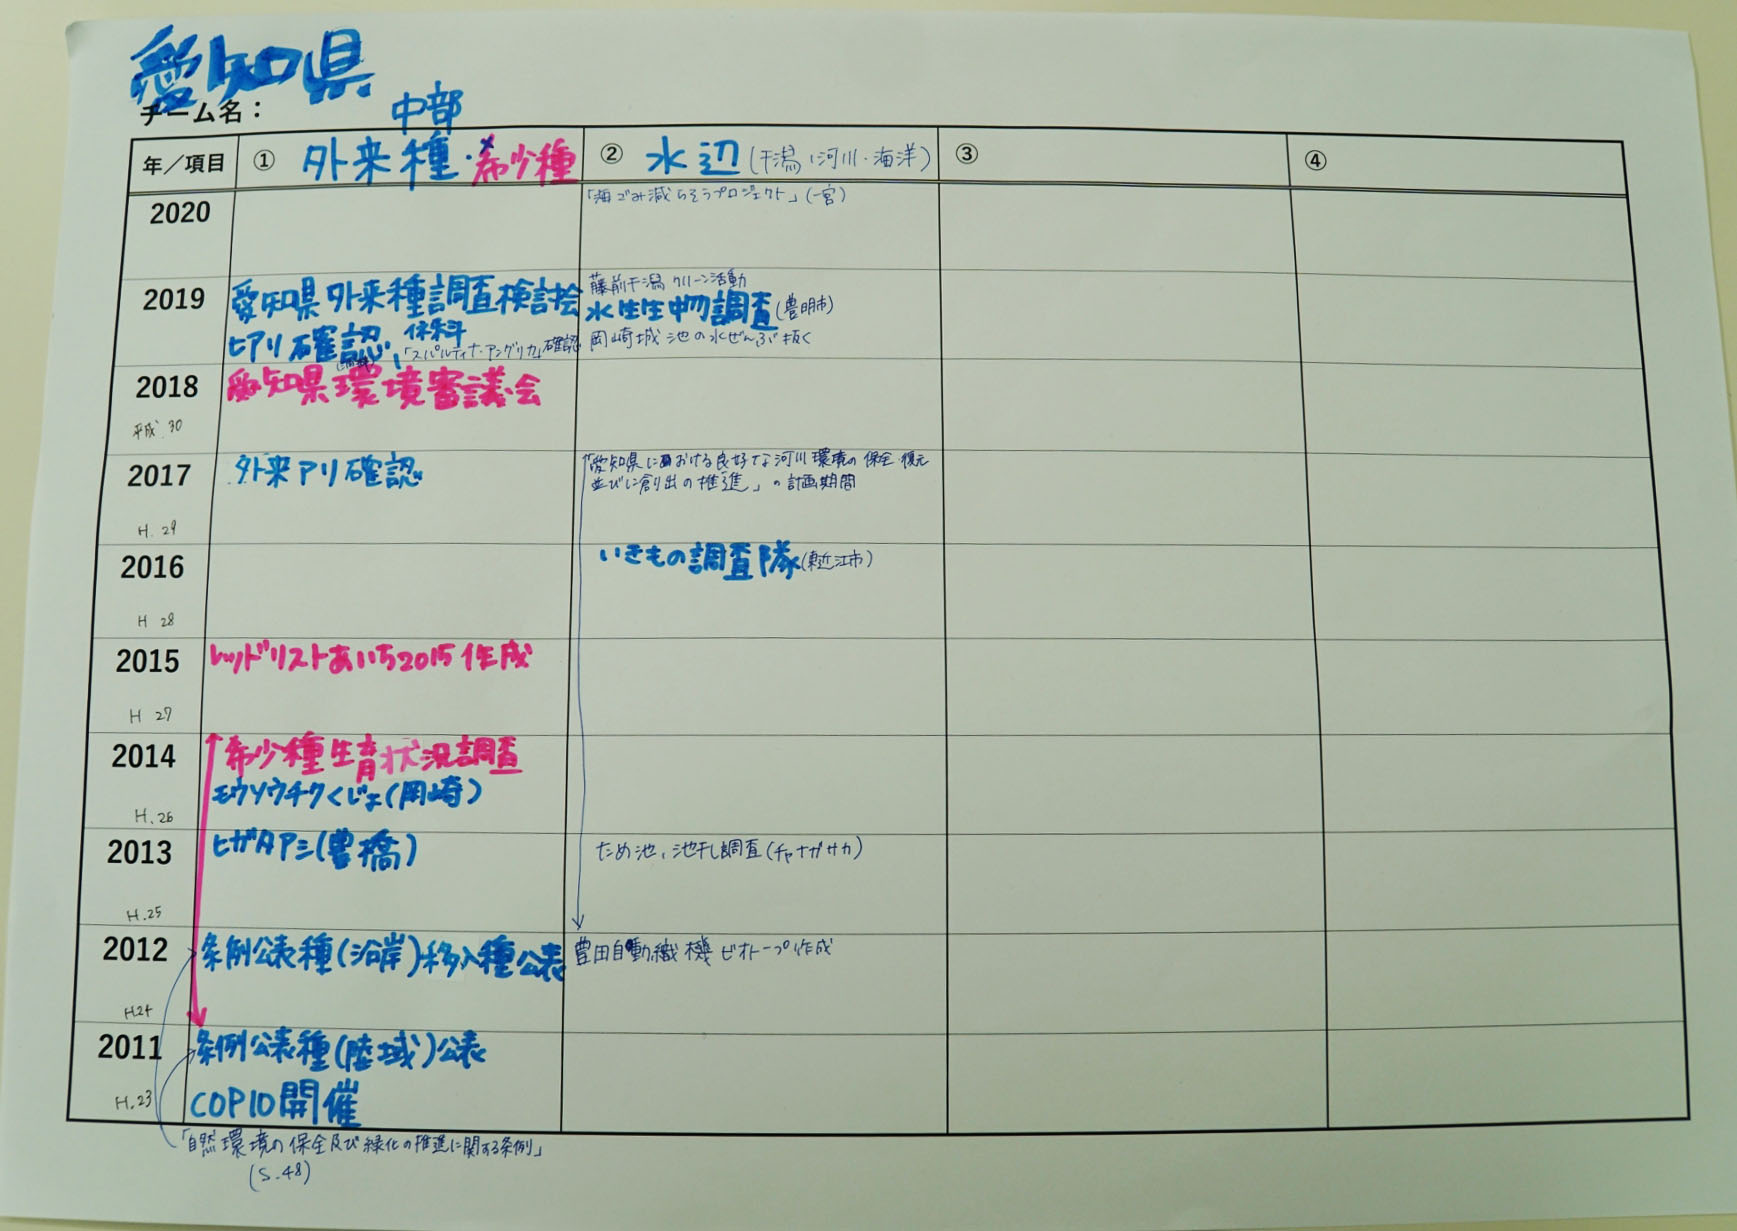 愛知県
チーム名：
中部
年／項目 ① 外来種・希少種 ② 水辺(干潟,河川・海洋) ③ ④
2020
「海ごみ減らそうプロジェクト」(一宮)
2019
愛知県外来種調査検討会
ヒアリ確認、
「スパルティナ・アングリカ」確認
藤前干潟クリーン活動
水生生物調査(豊明市)
岡崎城池の水ぜんぶ抜く
2018
平成.30
愛知県環境審議会
2017
H.29
外来アリ確認
「愛知県における良好な河川環境の保全・復元
並びに創出の推進」の計画期間
2016
H 28
いきもの調査隊(東近江市)
2015
H 27
レッドリストあいち2015作成
2014
H.26
希少種生育状況調査
モウソウチクくじょ(岡崎)
2013
H.25
ヒガタアシ(豊橋)
ため池、池干し調査(チャナガサカ)
2012
H.24
条例公表種(沿岸)移入種公表
豊田自動織機ビオトープ作成
2011
H.23
条例公表種(陸域)公表
COP10開催
「自然環境の保全及び緑化の推進に関する条例」
(S.48)